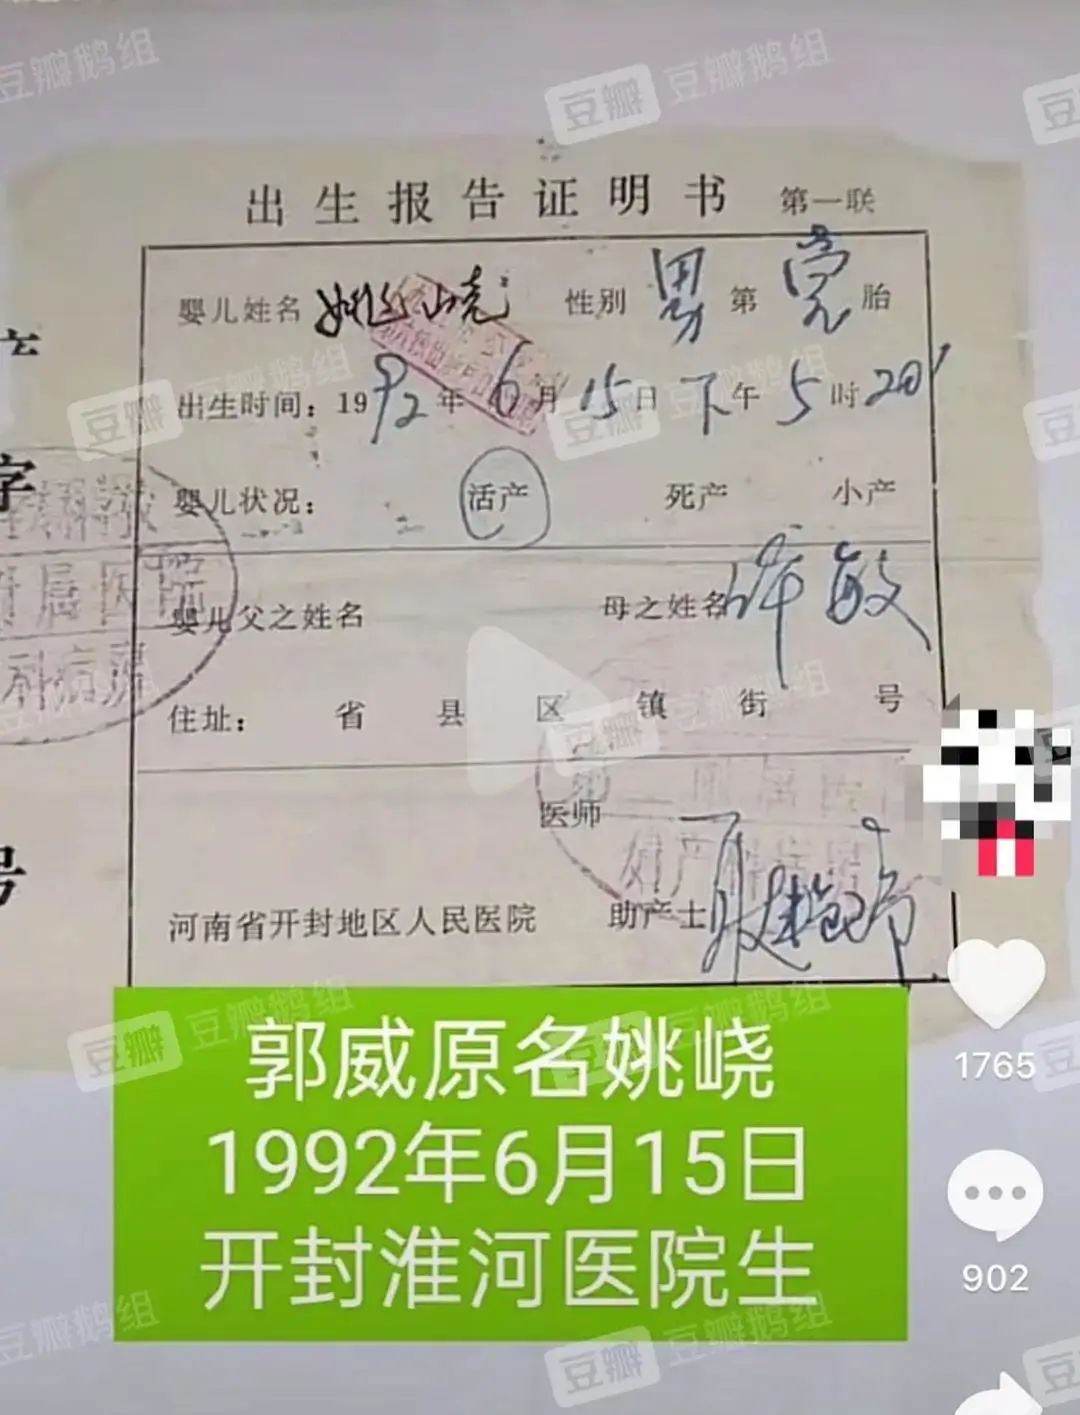 出生报告证明书 第一联
婴儿姓名 姚峣 性别 男 第 壹 胎
出生时间：1992年6月15日下午5时20'
婴儿状况： 活产 死产 小产
婴儿父之姓名 母之姓名 许敏
住址： 省 县 区 镇 街 号
医师
河南省开封地区人民医院 助产士
字
号
属医院
郭威原名姚峣
1992年6月15日
开封淮河医院生
1765
902
豆瓣 豆瓣鹅组